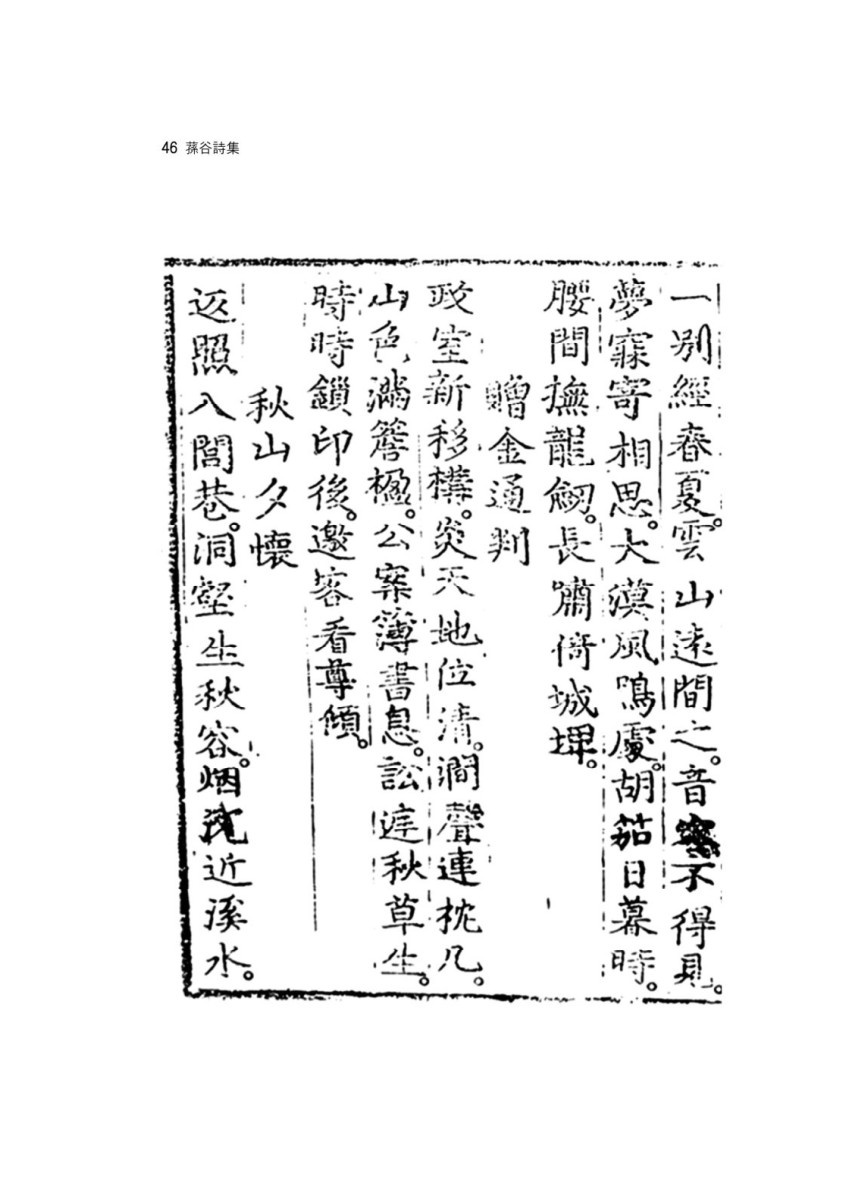 46 蓀谷詩集
一別經春夏。雲山遠間之。音容不得見。
夢寐寄相思。大漠風鳴處。胡茄日暮時。
腰間撫龍劒。長嘯倚城埤。
贈金通判
政室新移構。炎天地位淸。澗聲連枕几。
山色滿簷楹。公案簿書息。訟庭秋草生。
時時鎖印後。邀客看尊傾。
秋山夕懷
返照入閭巷。洞壑生秋容。烟沈近溪水。